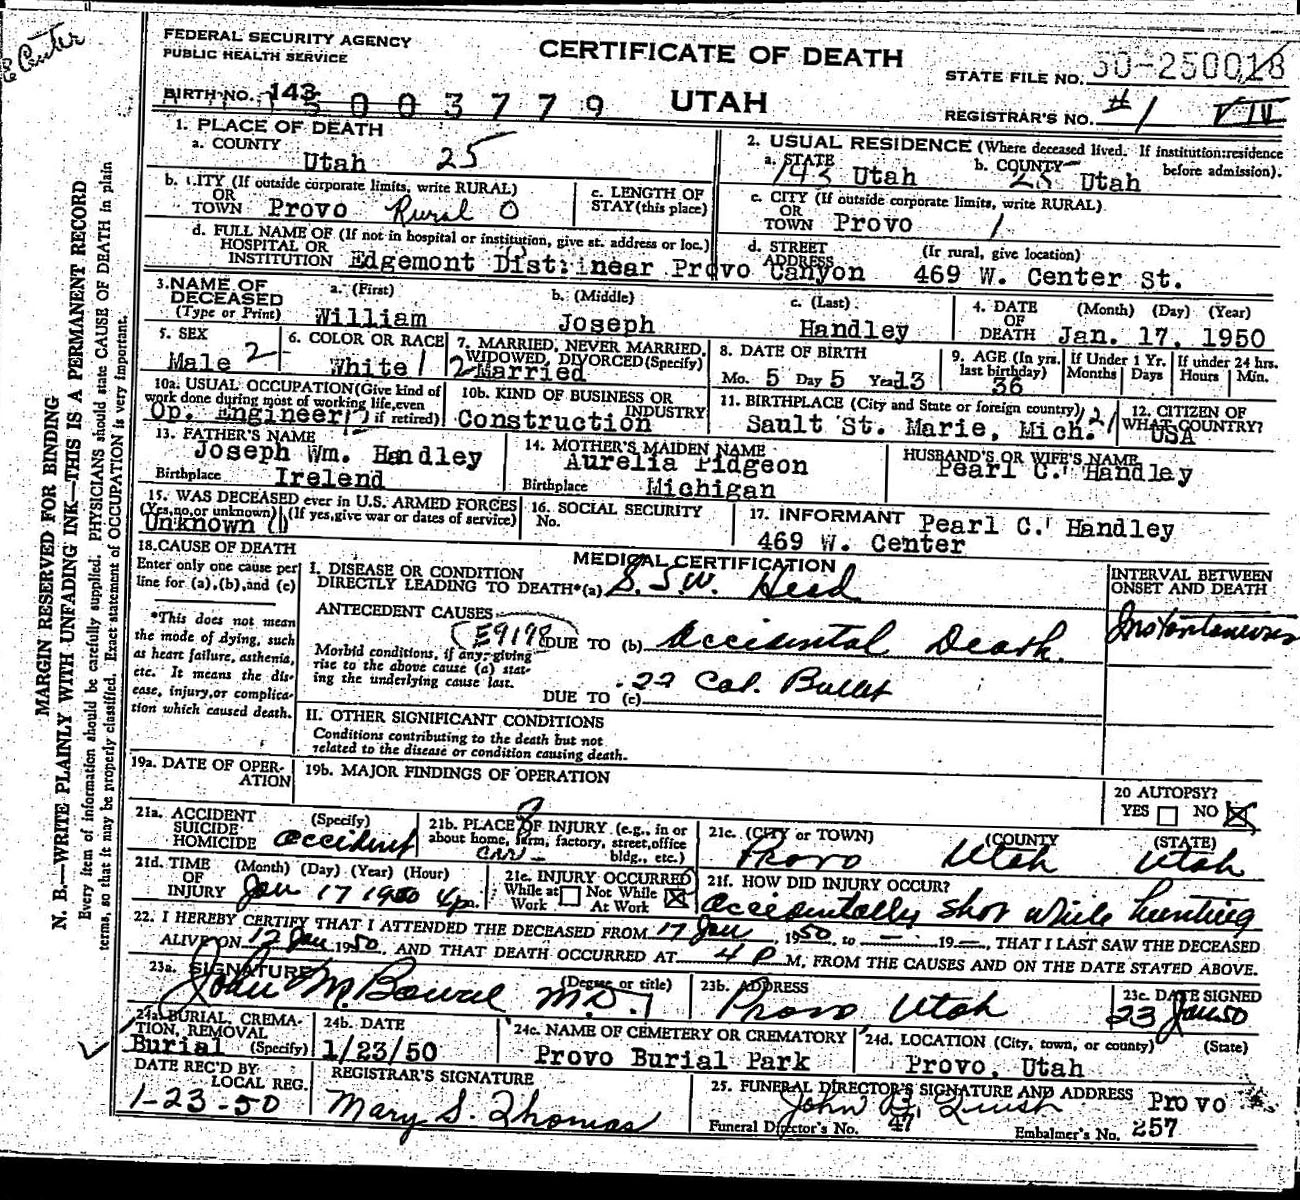 E Center
FEDERAL SECURITY AGENCY
PUBLIC HEALTH SERVICE
CERTIFICATE OF DEATH
STATE FILE NO. 50-250018
BIRTH NO. 143
5003779
UTAH
REGISTRAR'S NO. #1 VIII
1. PLACE OF DEATH
a. COUNTY
Utah 25
2. USUAL RESIDENCE (Where deceased lived. If institution:residence before admission).
a. STATE 143 Utah
b. COUNTY 25 Utah
b. CITY (If outside corporate limits, write RURAL)
OR
TOWN Provo Rural 0
c. LENGTH OF
STAY (this place)
c. CITY (If outside corporate limits, write RURAL)
OR
TOWN Provo 1
d. FULL NAME OF (If not in hospital or institution, give st. address or loc.)
HOSPITAL OR
INSTITUTION Edgemont Dist. near Provo Canyon
d. STREET (If rural, give location)
ADDRESS
469 W. Center St.
3. NAME OF
DECEASED
(Type or Print)
a. (First)
William
b. (Middle)
Joseph
c. (Last)
Handley
4. DATE (Month) (Day) (Year)
OF
DEATH Jan. 17, 1950
5. SEX
Male 2
6. COLOR OR RACE
White 1
7. MARRIED, NEVER MARRIED,
WIDOWED, DIVORCED (Specify)
2 Married
8. DATE OF BIRTH
Mo. 5 Day 5 Year 13
9. AGE (In yrs. last birthday)
36
If Under 1 Yr.
Months Days
If under 24 hrs.
Hours Min.
10a. USUAL OCCUPATION (Give kind of
work done during most of working life, even
if retired)
Op. Engineer
10b. KIND OF BUSINESS OR
INDUSTRY
Construction
11. BIRTHPLACE (City and State or foreign country)
Sault St. Marie, Mich. 21
12. CITIZEN OF
WHAT COUNTRY?
USA
13. FATHER'S NAME
Joseph Wm. Handley
Birthplace Irelend
14. MOTHER'S MAIDEN NAME
Aurelia Pidgeon
Birthplace Michigan
HUSBAND'S OR WIFE'S NAME
Pearl C. Handley
15. WAS DECEASED ever in U.S. ARMED FORCES
(Yes, no, or unknown) (If yes, give war or dates of service)
Unknown
16. SOCIAL SECURITY
No.
17. INFORMANT Pearl C. Handley
469 W. Center
18. CAUSE OF DEATH
Enter only one cause per
line for (a), (b), and (c)
MEDICAL CERTIFICATION
INTERVAL BETWEEN
ONSET AND DEATH
I. DISEASE OR CONDITION
DIRECTLY LEADING TO DEATH*(a) G.S.W. Head
Instantaneous
*This does not mean
the mode of dying, such
as heart failure, asthenia,
etc. It means the dis-
ease, injury, or complica-
tion which caused death.
ANTECEDENT CAUSES
Morbid conditions, if any, giving
rise to the above cause (a) stat-
ing the underlying cause last.
E9198
DUE TO (b) Accidental Death.
DUE TO (c) .22 Cal. Bullet
II. OTHER SIGNIFICANT CONDITIONS
Conditions contributing to the death but not
related to the disease or condition causing death.
19a. DATE OF OPER-
ATION
19b. MAJOR FINDINGS OF OPERATION
20 AUTOPSY?
YES NO X
21a. ACCIDENT (Specify)
SUICIDE
HOMICIDE
Accident
21b. PLACE OF INJURY (e.g., in or
about home, farm, factory, street, office
bldg., etc.)
21c. (CITY or TOWN) (COUNTY (STATE)
Provo Utah Utah
21d. TIME (Month) (Day) (Year) (Hour)
OF
INJURY Jan 17 1950 4p.
21e. INJURY OCCURRED
While at Work Not While At Work X
21f. HOW DID INJURY OCCUR?
Accidentally shot while hunting
22. I HEREBY CERTIFY THAT I ATTENDED THE DECEASED FROM 17 Jan, 1950, to —, 19—, THAT I LAST SAW THE DECEASED
ALIVE ON 17 Jan 1950, AND THAT DEATH OCCURRED AT 4 P M, FROM THE CAUSES AND ON THE DATE STATED ABOVE.
23a. SIGNATURE (Degree or title)
John M. M.D.
23b. ADDRESS
Provo Utah
23c. DATE SIGNED
23 Jan 50
24a. BURIAL, CREMA-
TION, REMOVAL
Burial (Specify)
24b. DATE
1/23/50
24c. NAME OF CEMETERY OR CREMATORY
Provo Burial Park
24d. LOCATION (City, town, or county) (State)
Provo, Utah
DATE REC'D BY
LOCAL REG.
1-23-50
REGISTRAR'S SIGNATURE
Mary S. Thomas
25. FUNERAL DIRECTOR'S SIGNATURE AND ADDRESS
John Provo
Funeral Director's No. 47
Embalmer's No. 257
MARGIN RESERVED FOR BINDING
N. B.—WRITE PLAINLY WITH UNFADING INK—THIS IS A PERMANENT RECORD
Every item of information should be carefully supplied. PHYSICIANS should state CAUSE OF DEATH in plain
terms, so that it may be properly classified. Exact statement of OCCUPATION is very important.